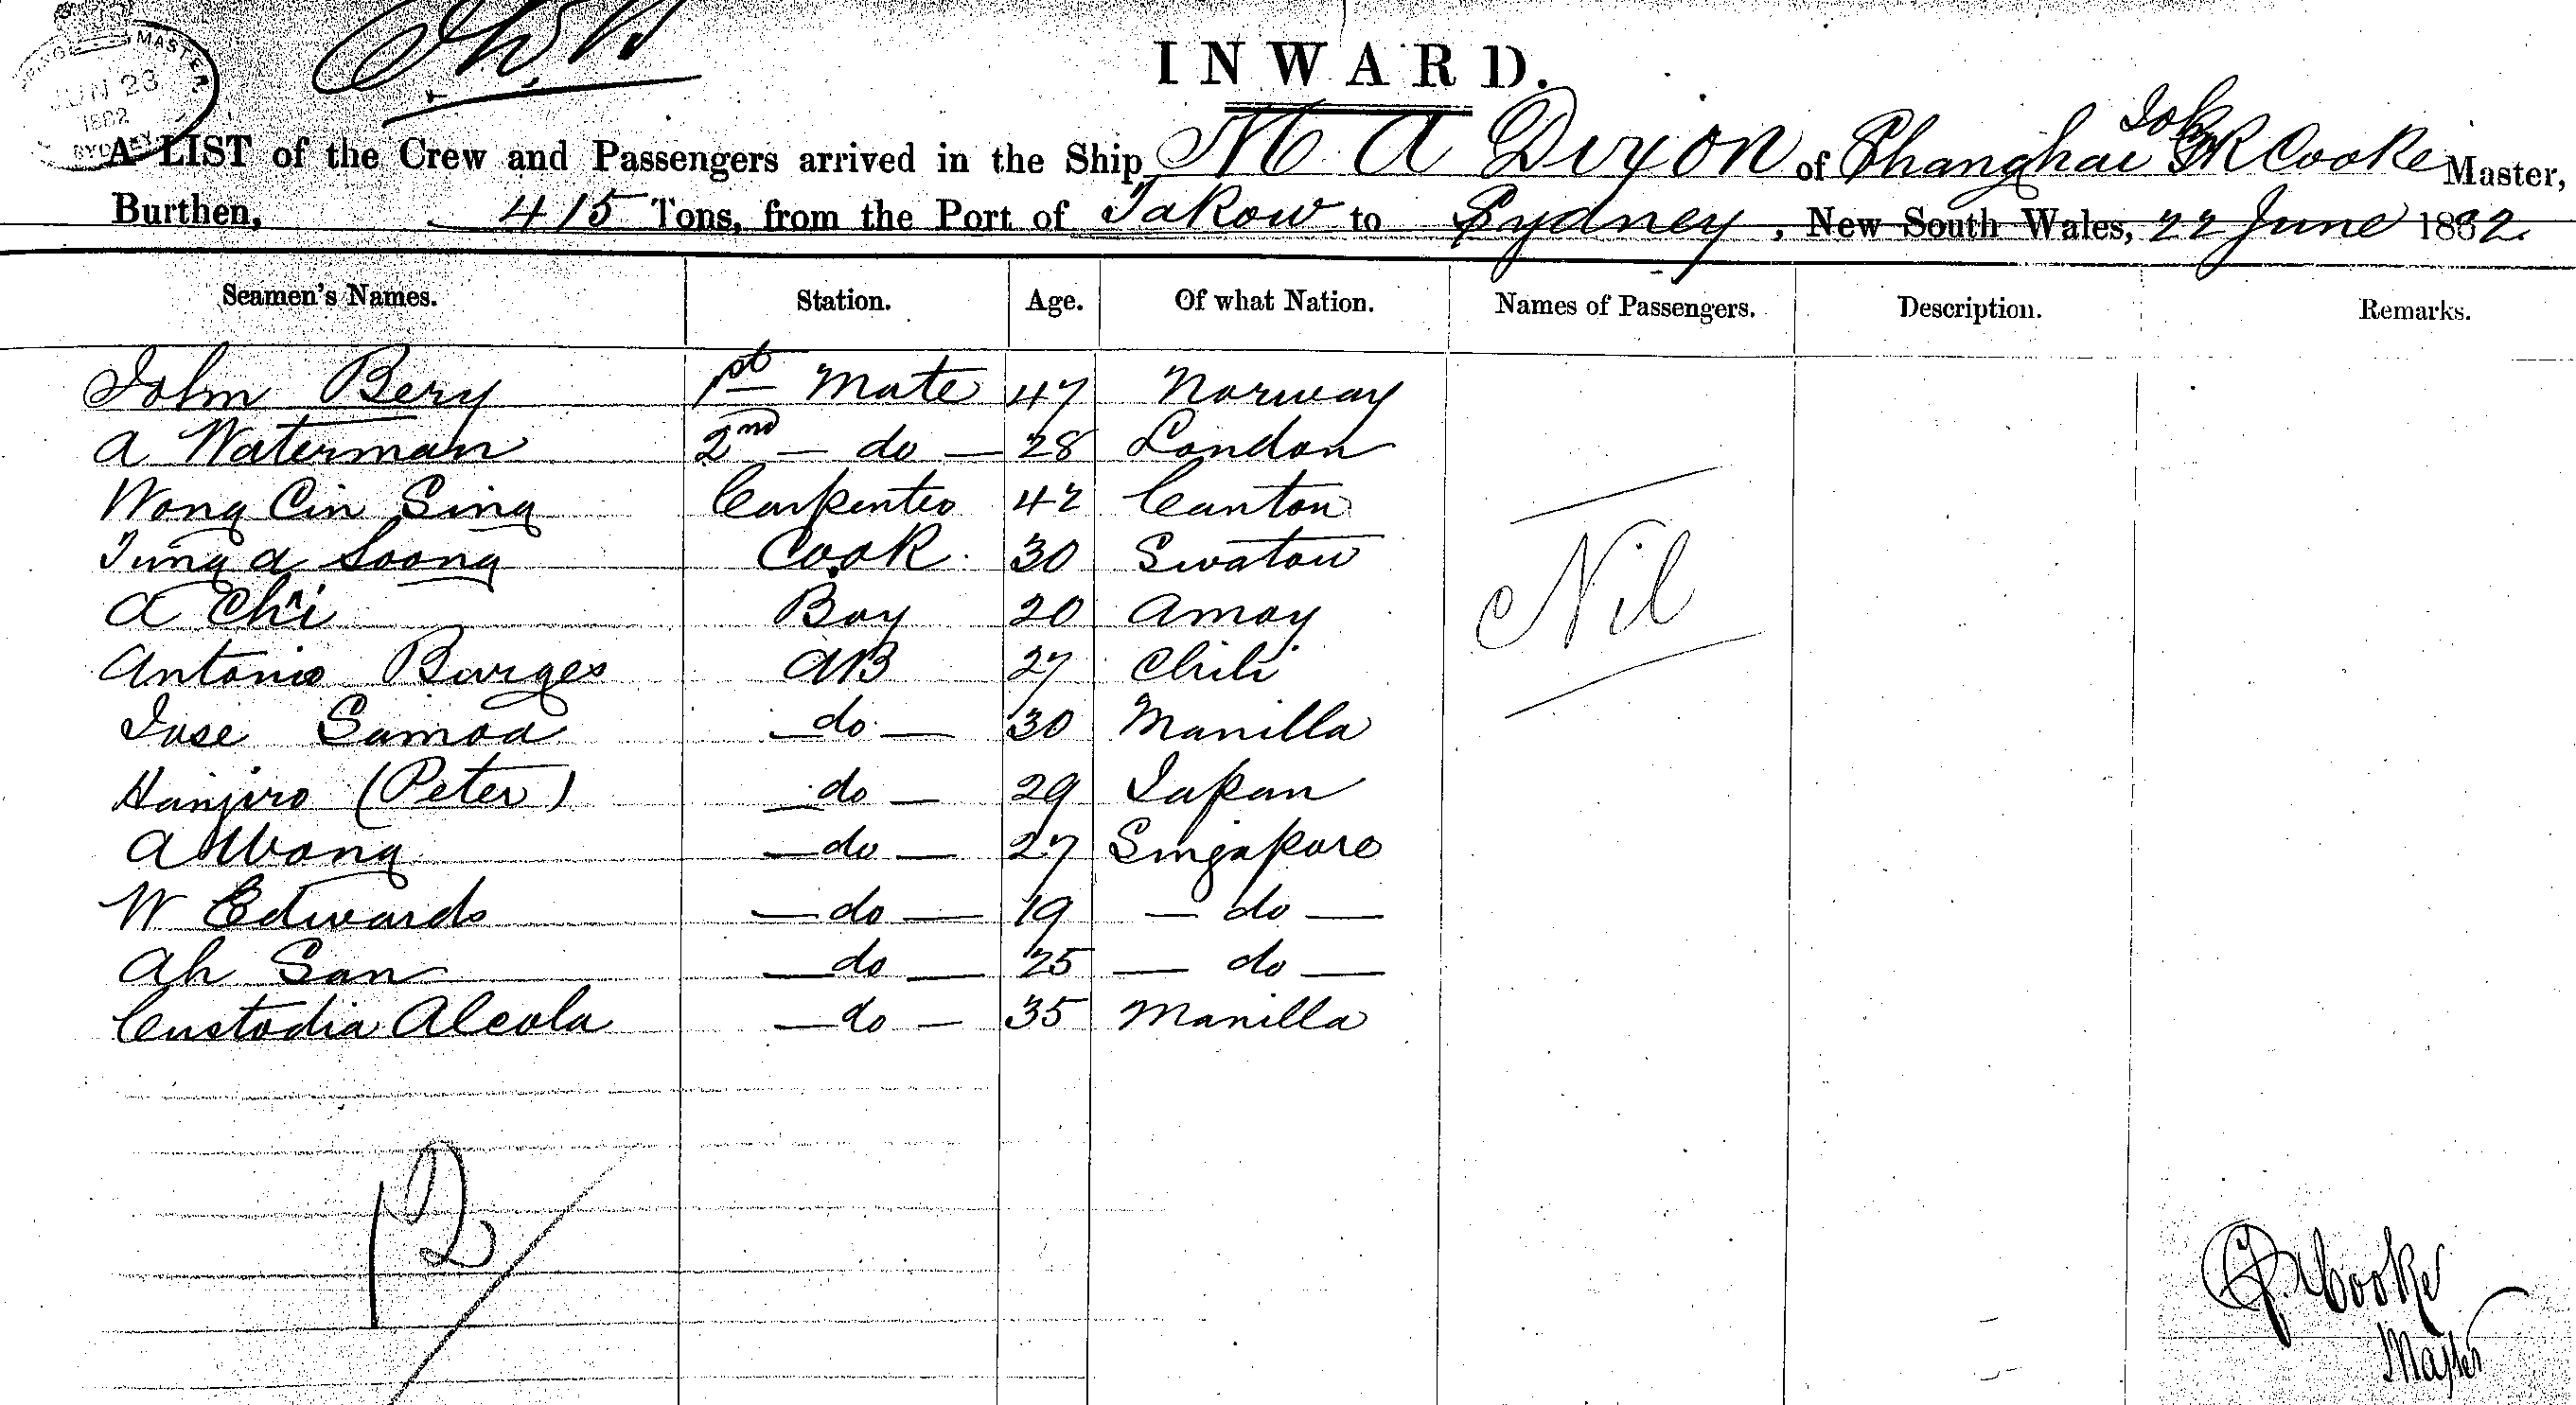 SHIPPING MASTER.
JUN 23
1882
SYDNEY
INWARD.
A LIST of the Crew and Passengers arrived in the Ship M A Dixon of Shanghai John R Cooke Master,
Burthen, 415 Tons, from the Port of Takow to Sydney, New South Wales, 22 June 1882.
Seamen's Names. Station. Age. Of what Nation. Names of Passengers. Description. Remarks.
John Bery 1st Mate 47 Norway
A Waterman 2nd — do — 28 London
Wong Cin Sing Carpenter 42 Canton
Tung a Soong Cook 30 Swatow
A Chi Boy 20 Amoy
Nil
Antonio Barges AB 27 Chili
Jose Samoa — do — 30 Manilla
Hanjiro (Peter) — do — 29 Japan
A Wong — do — 27 Singapore
W Edwards — do — 19 — do —
Ah San — do — 25 — do —
Custodia Alcola — do — 35 Manilla
12
Cooke
Master